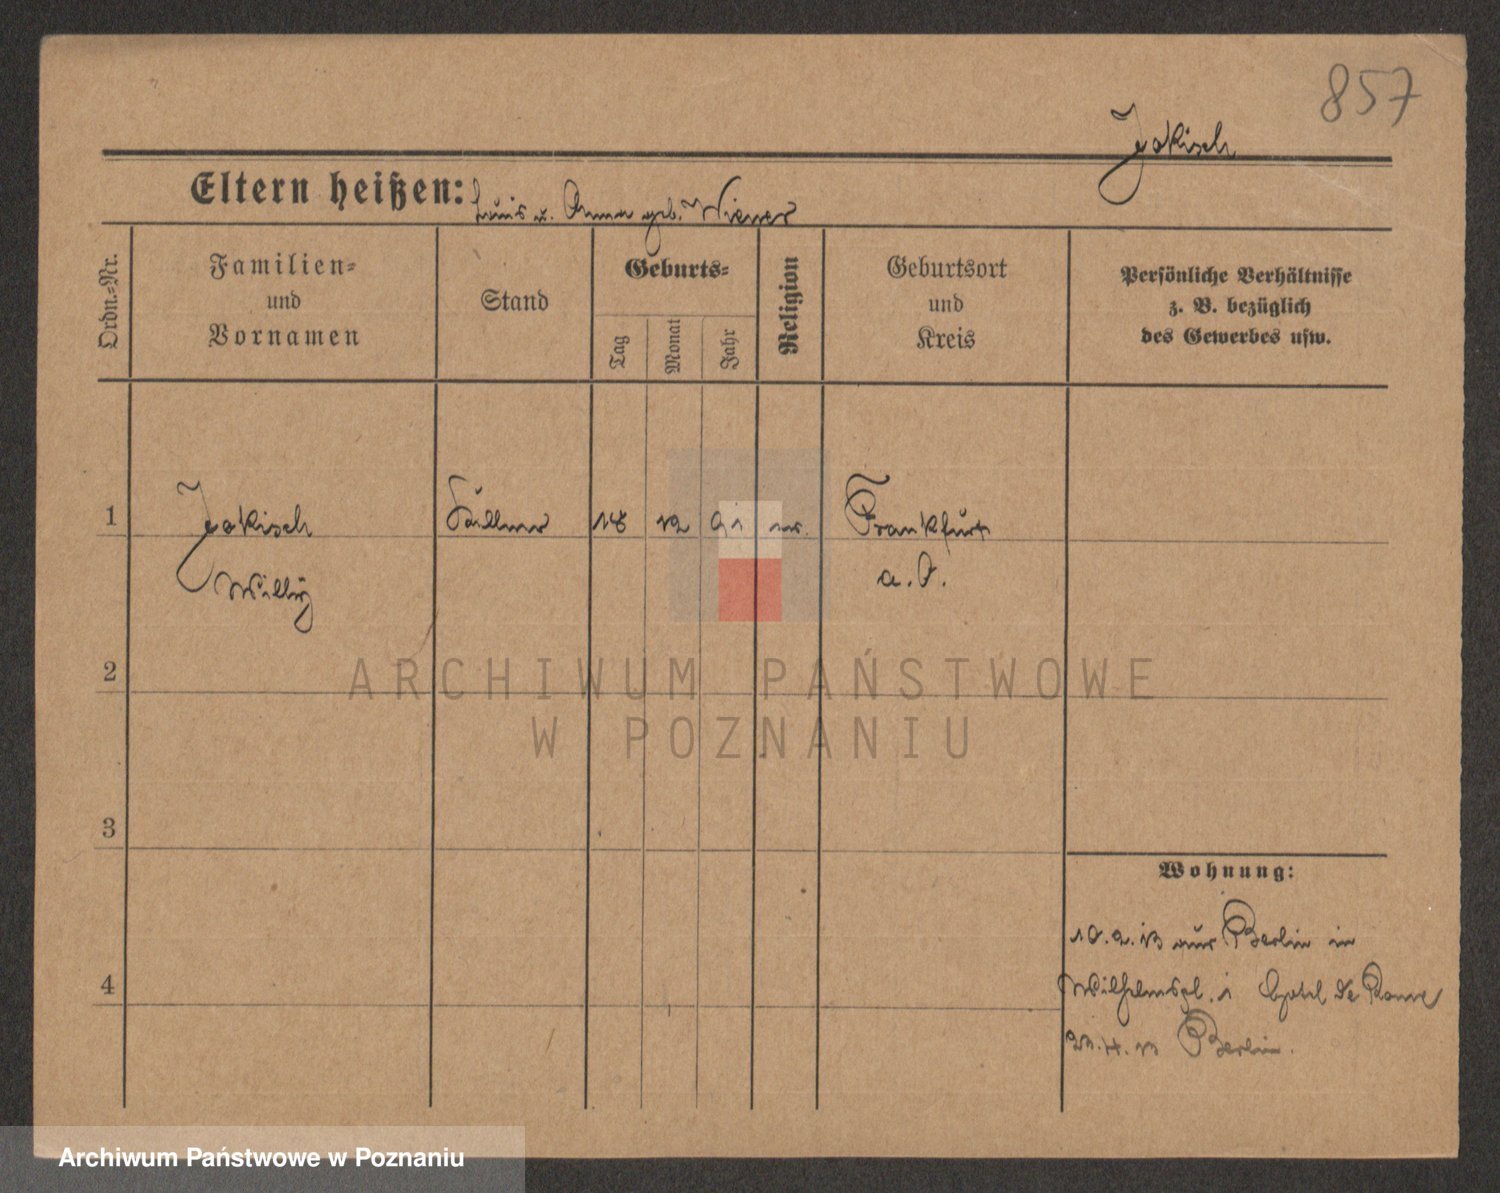 857
Jakisch
Eltern heißen: Luis u. Anna geb. Wiener
Ordn.-Nr.
Familien-
und
Vornamen
Stand
Geburts-
Tag
Monat
Jahr
Religion
Geburtsort
und
Kreis
Persönliche Verhältnisse
z. B. bezüglich
des Gewerbes usw.
1 Jakisch Kellner 18 12 91 Frankfurt
Willy a. O.
2
ARCHIWUM PAŃSTWOWE
W POZNANIU
3
4
Wohnung:
10.2.13 aus Berlin in
Wilhelmspl. 1 Hotel de Rome
4. 13 Berlin.
Archiwum Państwowe w Poznaniu